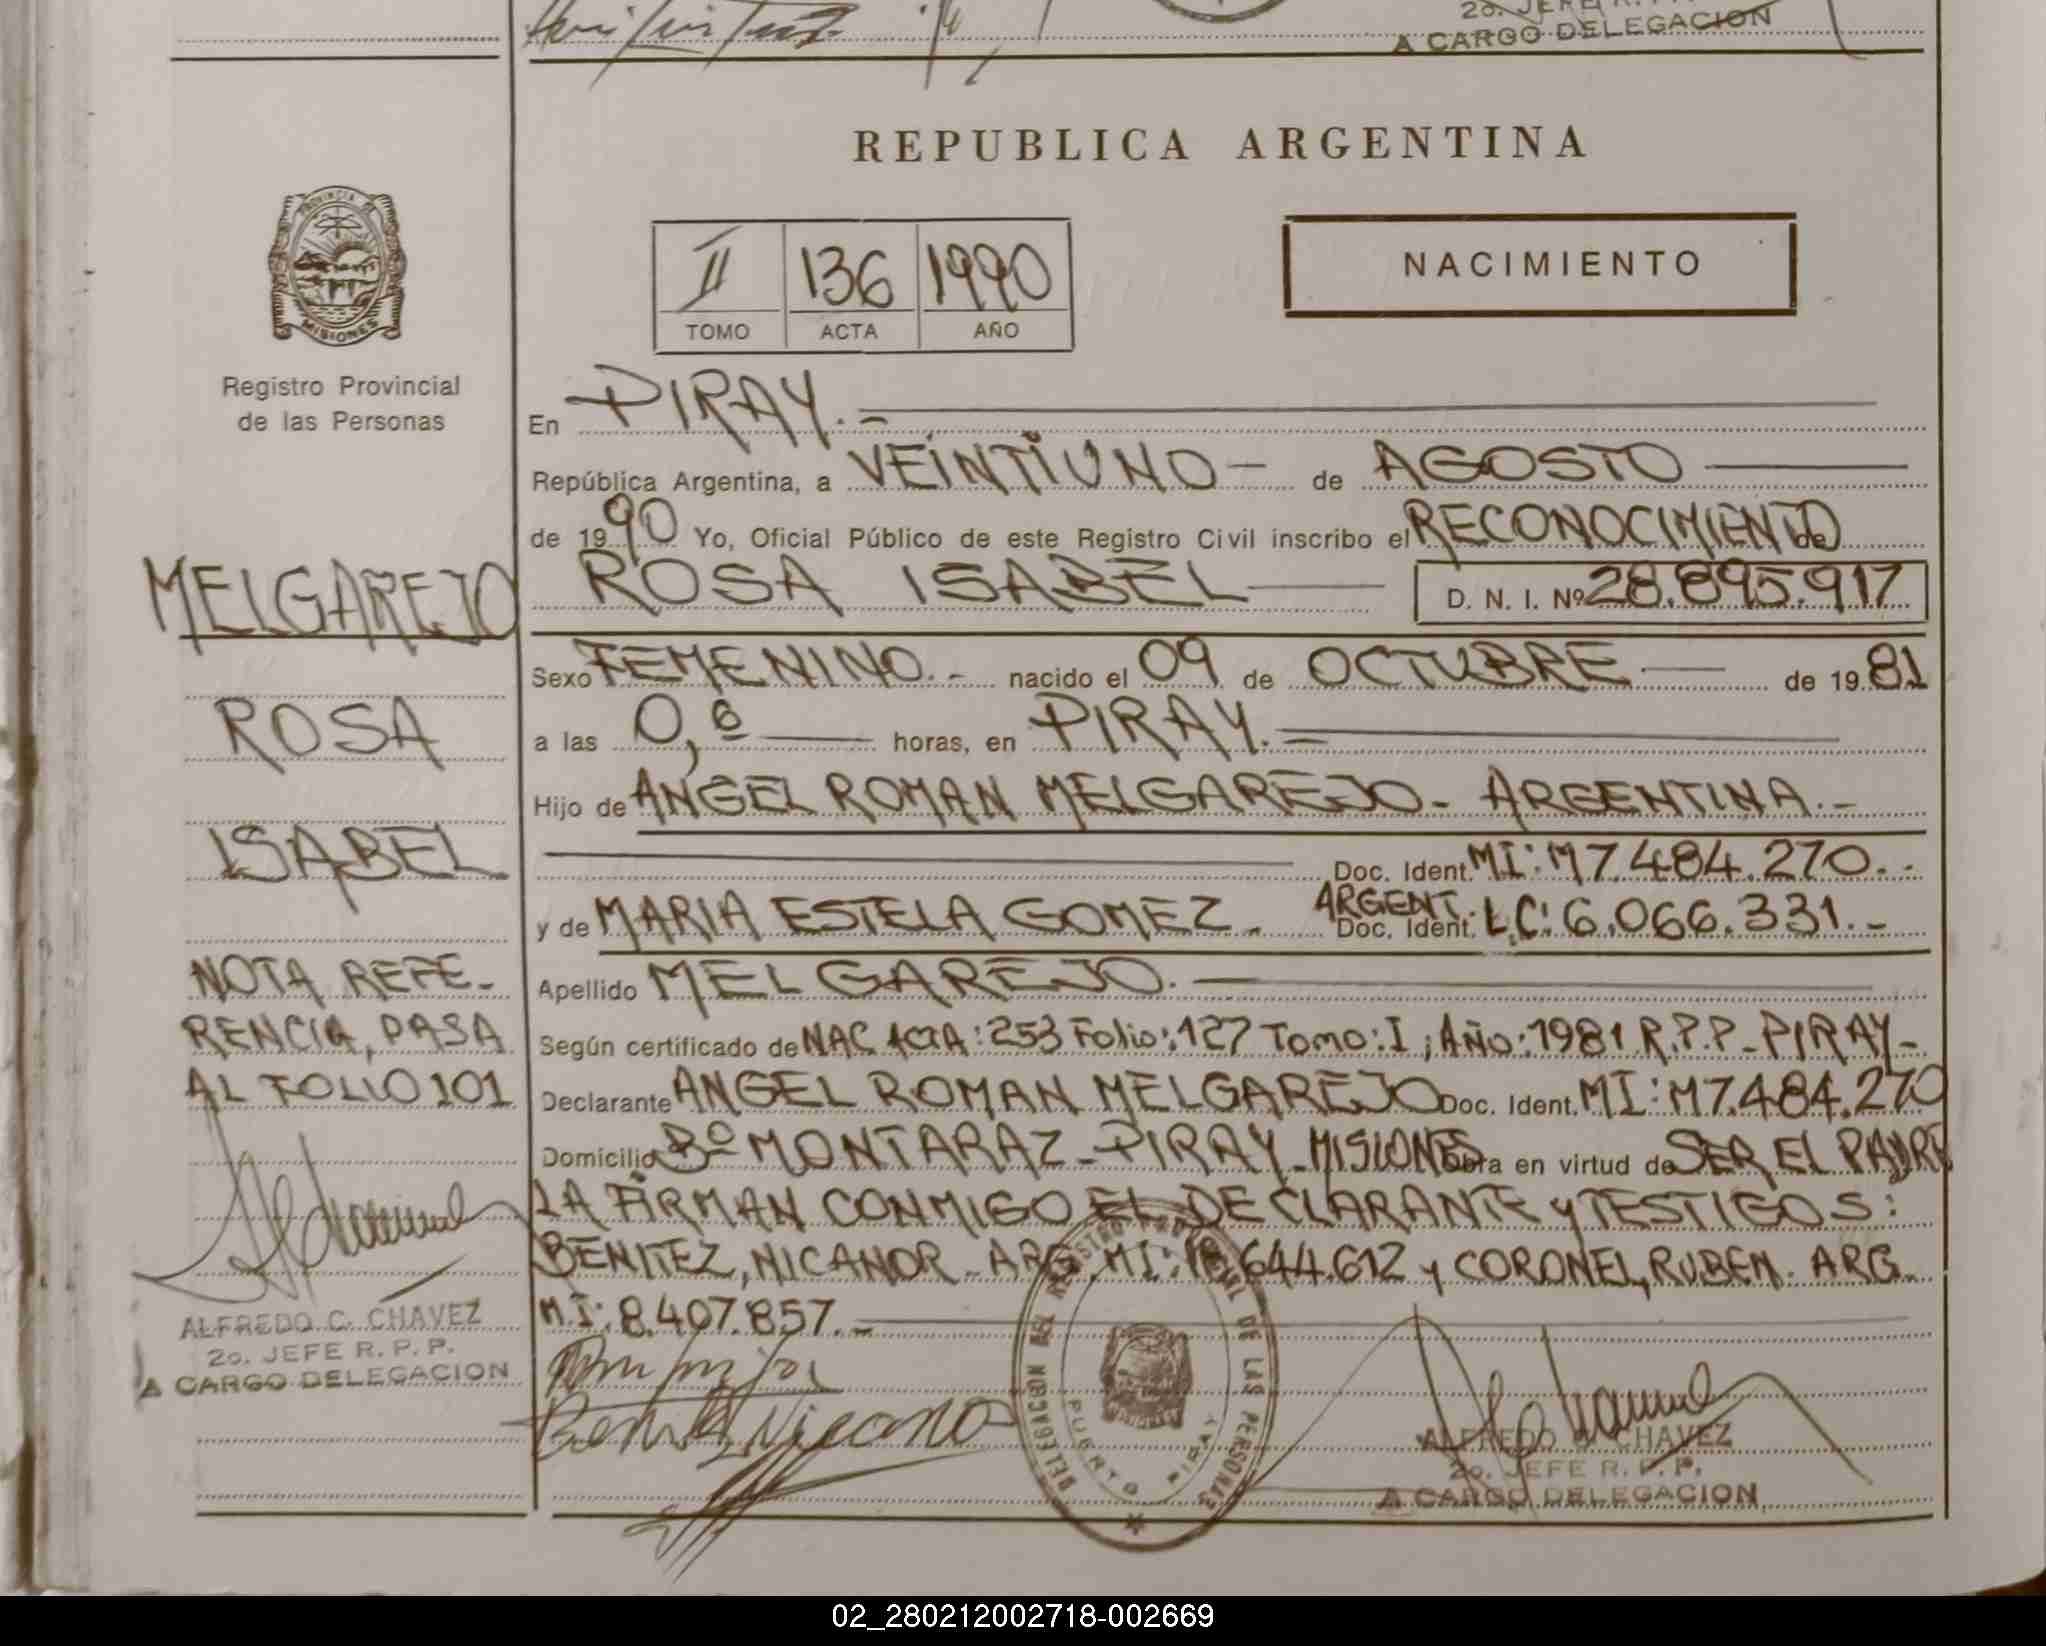 2o. JEFE R. P. P.
A CARGO DELEGACION
REPUBLICA ARGENTINA
PROVINCIA DE
MISIONES
II 136 1990
TOMO ACTA AÑO
NACIMIENTO
Registro Provincial
de las Personas
En PIRAY.-
República Argentina, a VEINTIUNO - de AGOSTO
de 1990 Yo, Oficial Público de este Registro Civil inscribo el RECONOCIMIENTO de
ROSA ISABEL D. N. I. Nº 28.895.917
MELGAREJO
ROSA
ISABEL
NOTA REFE-
RENCIA, PASA
AL FOLIO 101
ALFREDO C. CHAVEZ
2o. JEFE R. P. P.
A CARGO DELEGACION
Sexo FEMENINO.- nacido el 09 de OCTUBRE de 1981
a las 0,º horas, en PIRAY.-
Hijo de ANGEL ROMAN MELGAREJO - ARGENTINA.-
Doc. Ident. MI: M7.484.270.-
y de MARIA ESTELA GOMEZ - ARGENT. Doc. Ident. L.C: 6.066.331.-
Apellido MELGAREJO.
Según certificado de NAC ACTA: 253 Folio: 127 Tomo: I; Año: 1981 R.P.P - PIRAY -
Declarante ANGEL ROMAN MELGAREJO Doc. Ident. MI: M7.484.270
Domicilio Bº MONTARAZ - PIRAY - MISIONES obra en virtud de SER EL PADRE
LA FIRMAN CONMIGO EL DECLARANTE y TESTIGOS:
BENITEZ, NICANOR - ARG. MI: 644.612 y CORONEL, RUBEN. ARG.
M.I: 8.407.857.-
Benitez Nicanor
DELEGACION DEL REGISTRO PROVINCIAL DE LAS PERSONAS
PUERTO PIRAY
ALFREDO C. CHAVEZ
2o. JEFE R. P. P.
A CARGO DELEGACION
02_280212002718-002669